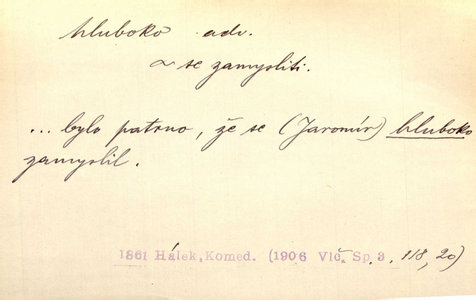 hluboko adv.
~ se zamysliti.
... bylo patrno, že se (Jaromír) hluboko
zamyslil.
1861 Hálek, Komed. (1906 Vlč. Sp 3, 118, 20)